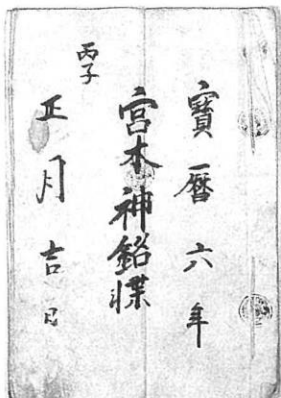 寳暦六年
宮本神銘㯥
丙子
正月吉日